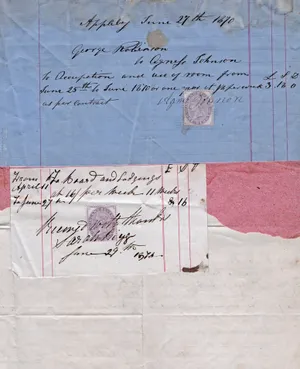 Appleby June 27th 1870
George Robinson
to Agness Johnson
to Occupation and use of room from £ S D
June 25th to June 1870 or one year at per annum 3 10 0
as per contract
Agness Johnson
From To Board and Lodgings £ S D
April 11 at 16/ per week 11 weeks
To June 27 8 16
Received with thanks
Sarah
June 29th 1870